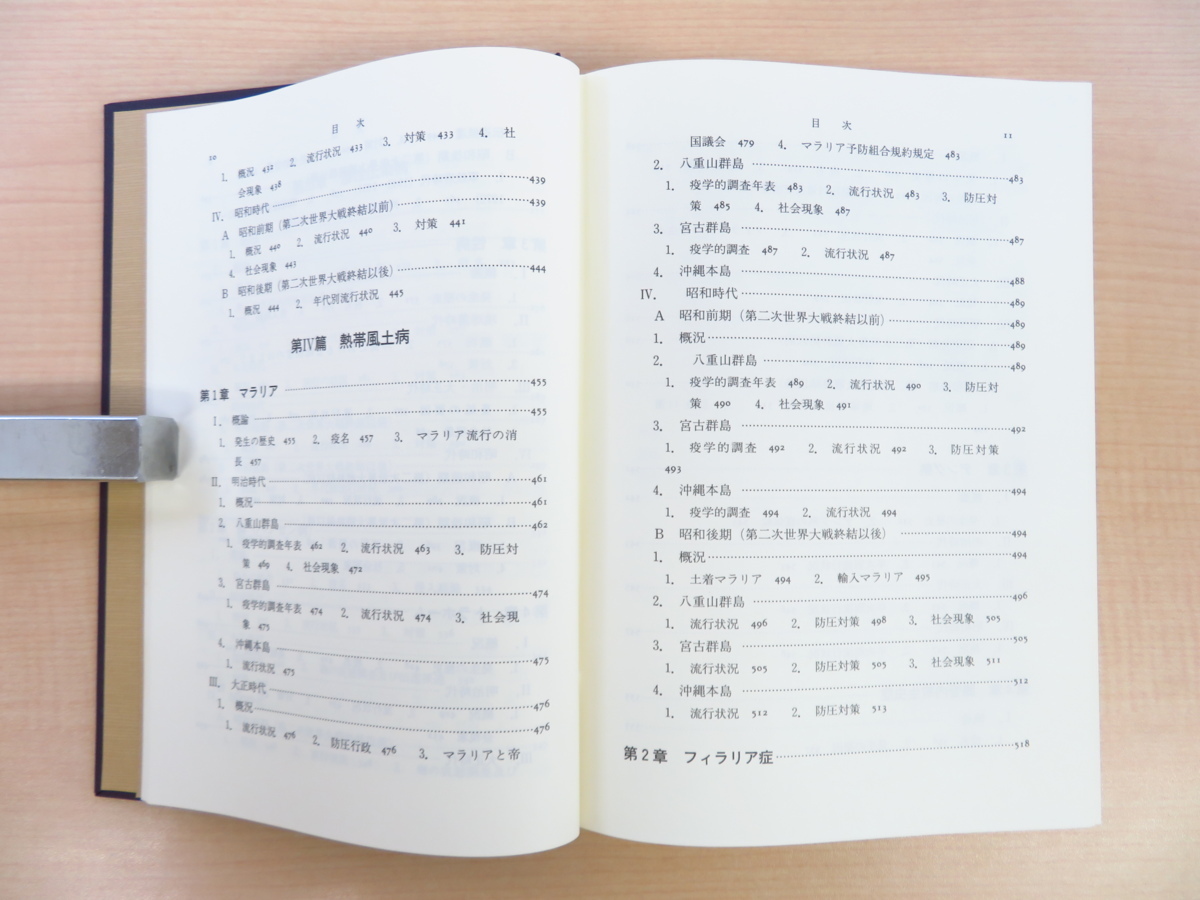 目次
10
1. 概況 432 2. 流行状況 433 3. 対策 433 4. 社
会現象 438
Ⅳ. 昭和時代 439
A 昭和前期（第二次世界大戦終結以前） 439
1. 概況 440 2. 流行状況 440 3. 対策 441
4. 社会現象 443
B 昭和後期（第二次世界大戦終結以後） 444
1. 概況 444 2. 年代別流行状況 445
第Ⅳ篇 熱帯風土病
第1章 マラリア 455
Ⅰ. 概論 455
1. 発生の歴史 455 2. 疫名 457 3. マラリア流行の消
長 457
Ⅱ. 明治時代 461
1. 概況 461
2. 八重山群島 462
1. 疫学的調査年表 462 2. 流行状況 463 3. 防圧対
策 469 4. 社会現象 472
3. 宮古群島 474
1. 疫学的調査年表 474 2. 流行状況 474 3. 社会現
象 475
4. 沖縄本島 475
1. 流行状況 475
Ⅲ. 大正時代 476
1. 概況 476
1. 流行状況 476 2. 防圧行政 476 3. マラリアと帝
目次
11
国議会 479 4. マラリア予防組合規約規定 483
2. 八重山群島 483
1. 疫学的調査年表 483 2. 流行状況 483 3. 防圧対
策 485 4. 社会現象 487
3. 宮古群島 487
1. 疫学的調査 487 2. 流行状況 487
4. 沖縄本島 488
Ⅳ. 昭和時代 489
A 昭和前期（第二次世界大戦終結以前） 489
1. 概況 489
2. 八重山群島 489
1. 疫学的調査年表 489 2. 流行状況 490 3. 防圧対
策 490 4. 社会現象 491
3. 宮古群島 492
1. 疫学的調査 492 2. 流行状況 492 3. 防圧対策
493
4. 沖縄本島 494
1. 疫学的調査 494 2. 流行状況 494
B 昭和後期（第二次世界大戦終結以後） 494
1. 概況 494
1. 土着マラリア 494 2. 輸入マラリア 495
2. 八重山群島 496
1. 流行状況 496 2. 防圧対策 498 3. 社会現象 505
3. 宮古群島 505
1. 流行状況 505 2. 防圧対策 505 3. 社会現象 511
4. 沖縄本島 512
1. 流行状況 512 2. 防圧対策 513
第2章 フィラリア症 518